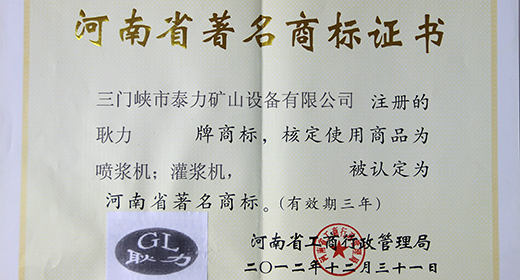 河南省著名商标证书
三门峡市泰力矿山设备有限公司 注册的
耿力 牌商标，核定使用商品为
喷浆机；灌浆机， 被认定为
河南省著名商标。(有效期三年)
GL
耿力
河南省工商行政管理局
二〇一二年十二月三十一日